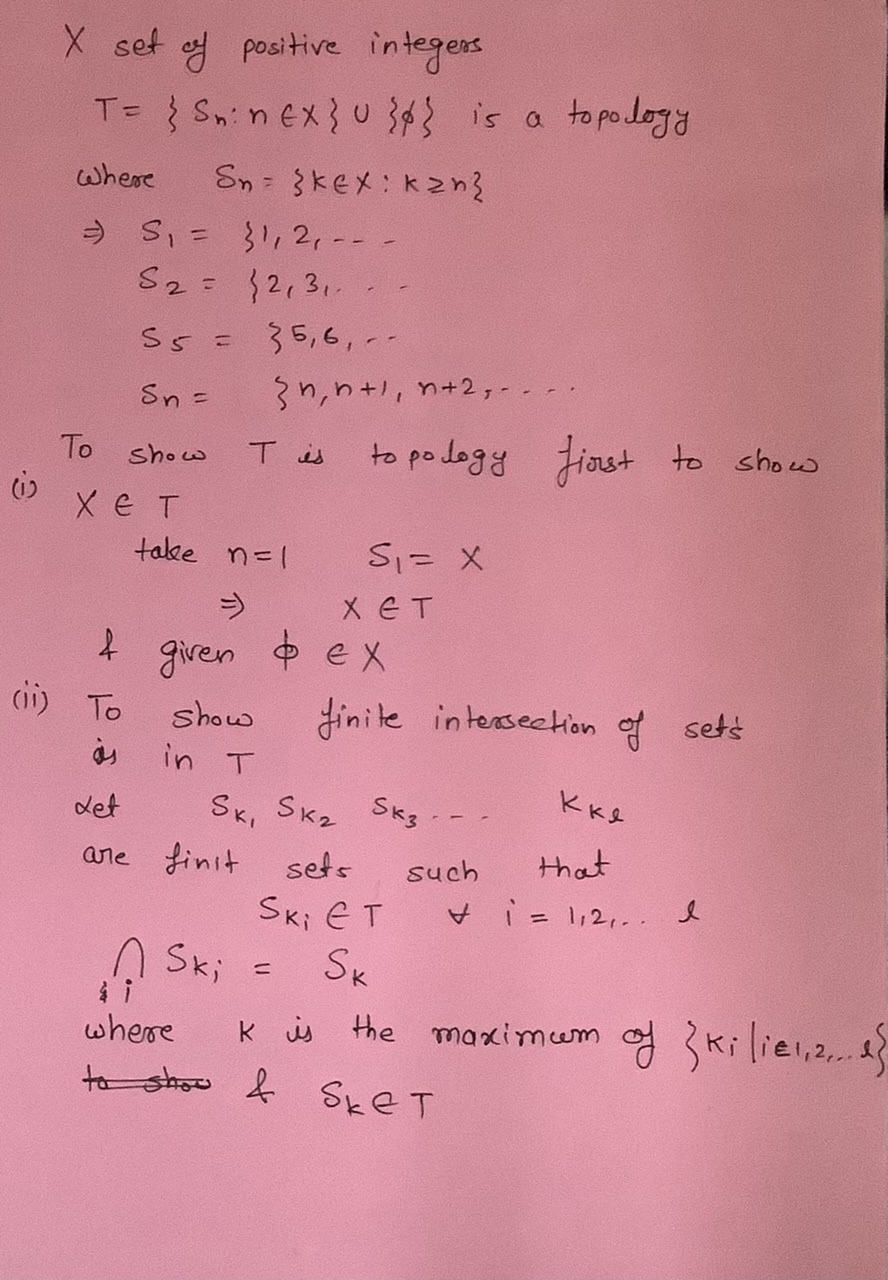 X set of positive integers
T = { Sn : n ∈ X } ∪ {ϕ} is a topology
where Sn = {k ∈ X : k ≥ n}
⇒ S1 = {1, 2, - - -
S2 = {2, 3, . . -
S5 = {5, 6, - -
Sn = {n, n+1, n+2, - - - .
To show T is topology first to show
(i) X ∈ T
take n=1 S1 = X
⇒ X ∈ T
& given ϕ ∈ X
(ii) To show finite intersection of sets
is in T
Let SK1 SK2 SK3 - - - KKl
are finit sets such that
SKi ∈ T ∀ i = 1,2,.. l
⋂i SKi = SK
where K is the maximum of {Ki | i∈1,2,...l}
to show & SK ∈ T